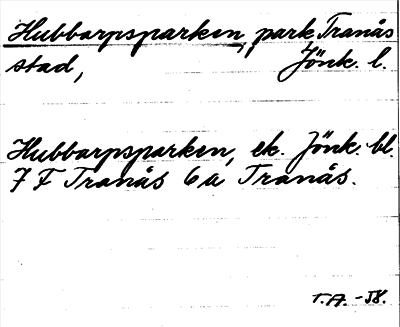 Hubbarpsparken, park Tranås
stad, Jönk. l.
Hubbarpsparken, ek. Jönk. bl.
7 F Tranås 6 a Tranås.
T.A. -58.